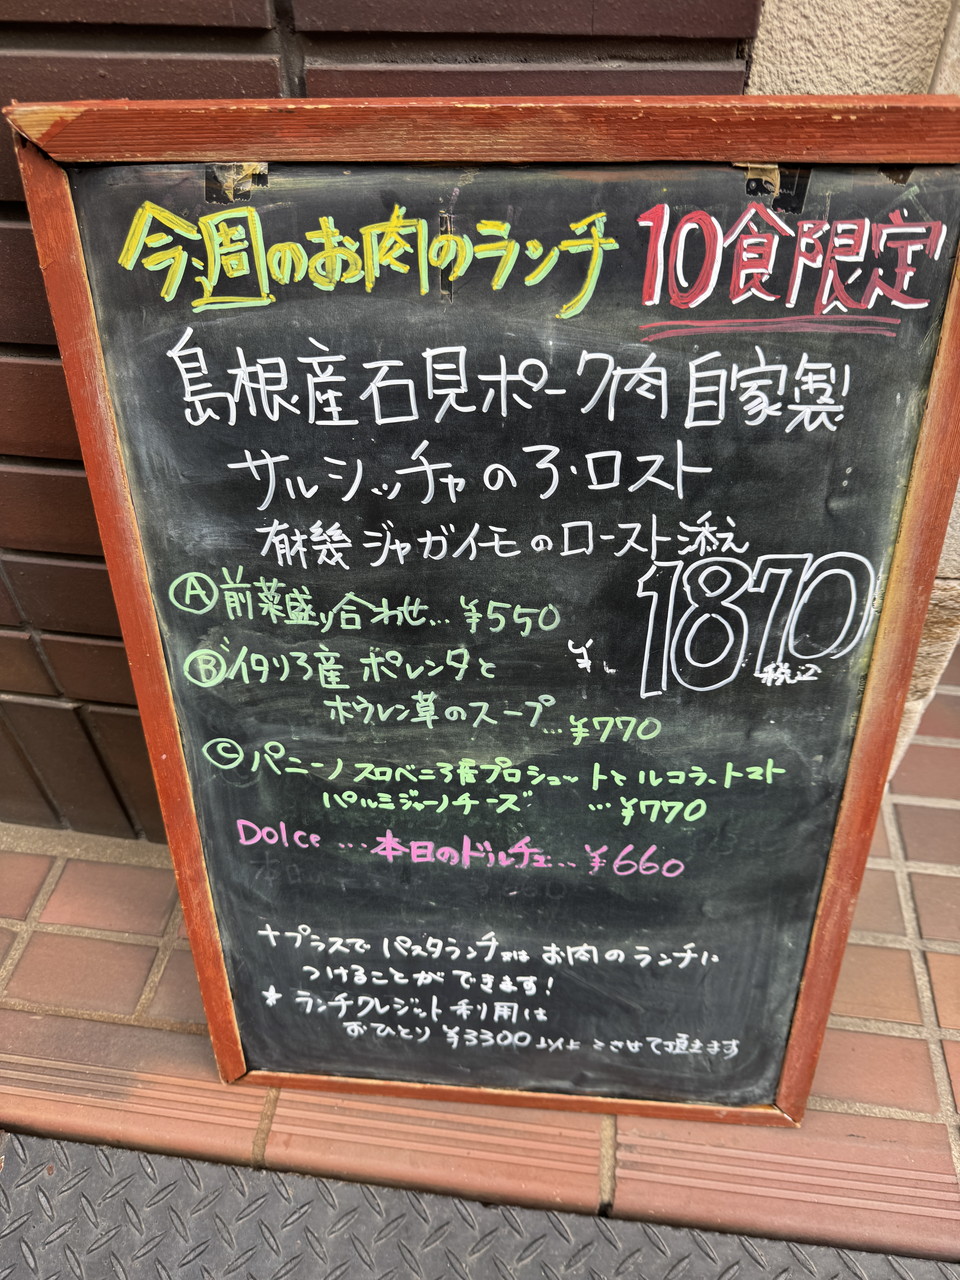 今週のお肉のランチ 10食限定
島根産石見ポーク肉自家製
サルシッチャのロースト
有機ジャガイモのロースト添え
¥1870税込
Ⓐ前菜盛り合わせ...¥550
Ⓑイタリア産 ポレンタと
ホウレン草のスープ...¥770
Ⓒパニーノ スロベニア産プロシュートとルコラ、トマト
パルミジャーノチーズ ...¥770
Dolce ...本日のドルチェ...¥660
+プラスで パスタランチ又はお肉のランチに
つけることができます!
★ランチクレジット利用は
おひとり¥3300以上とさせて頂きます